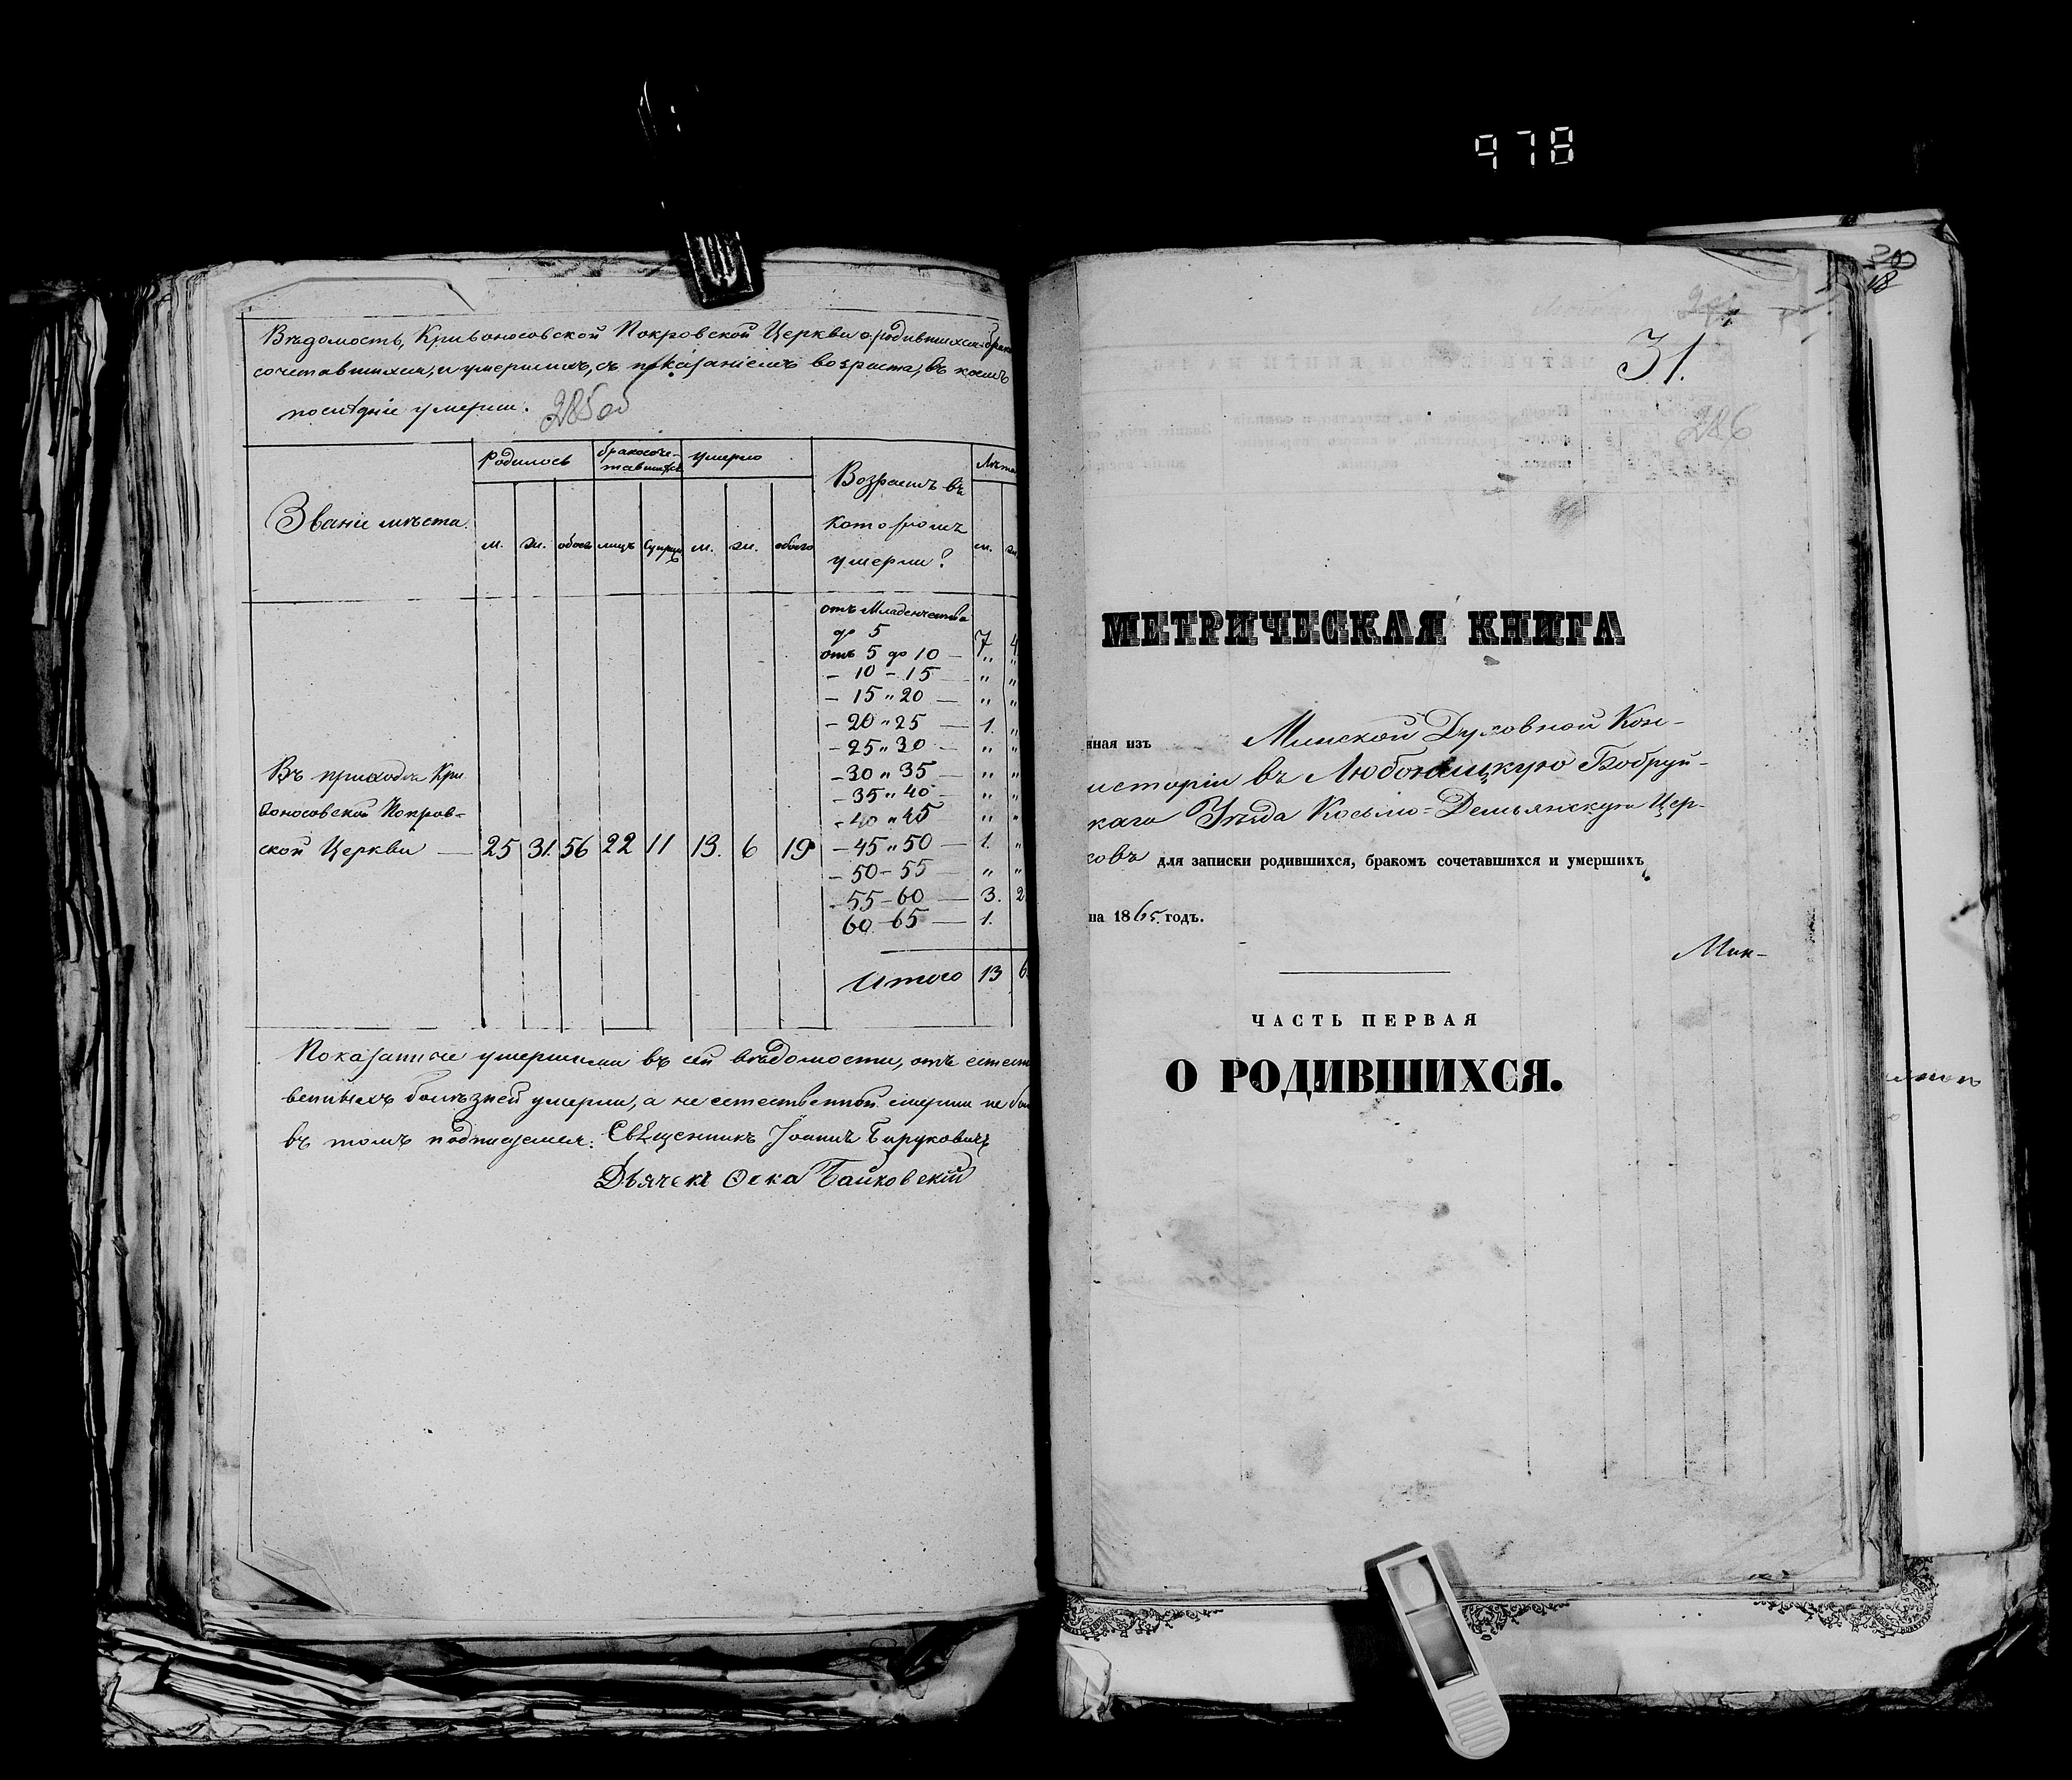 978
Вѣдомость, Кривоносовской Покровской Церкви о родившихся, брако
сочетавшихся, и умершихъ, съ показаніемъ возраста, въ коемъ
послѣдніе умерли. 285об
Званіе мѣста.
Родилось
бракосоче-
тавшихся
умерло
Возрастъ въ
которомъ
умерли?
Лѣта
м. ж. обоего лицъ Супруж. м. ж. обоего м. ж
отъ Младенчества
до 5 7 4
отъ 5 до 10 — „ „
— 10 — 15 — „ „
— 15 „ 20 — „ „
— 20 „ 25 — 1. „
— 25 „ 30 — „ „
— 30 „ 35 — „ „
— 35 „ 40 — „ „
— 40 „ 45 „ „
— 45 „ 50 — 1. „
— 50 — 55 — „ „
— 55 — 60 — 3. 2
60 — 65 — 1.
Итого 13 6
Въ приходѣ Кри
воносовской Покров-
ской Церкви — 25 31. 56 22 11 13. 6 19
Показанные умершими въ сей вѣдомости, отъ естест
венныхъ болѣзней умерли, а не естественной смерти не бы
въ томъ подписуемся: Священникъ Іоаннъ Бируковичъ
Дьячекъ Ѳока Байковскій
31.
286
МЕТРИЧЕСКАЯ КНИГА
нная изъ Минской Духовной Кон-
систоріи въ Любоницкую Бобруй-
скаго Уѣзда Косьмо-Демьянскую Цер-
ковь для записки родившихся, бракомъ сочетавшихся и умершихъ
на 1865 годъ.
Мин-
ЧАСТЬ ПЕРВАЯ
О РОДИВШИХСЯ.
18